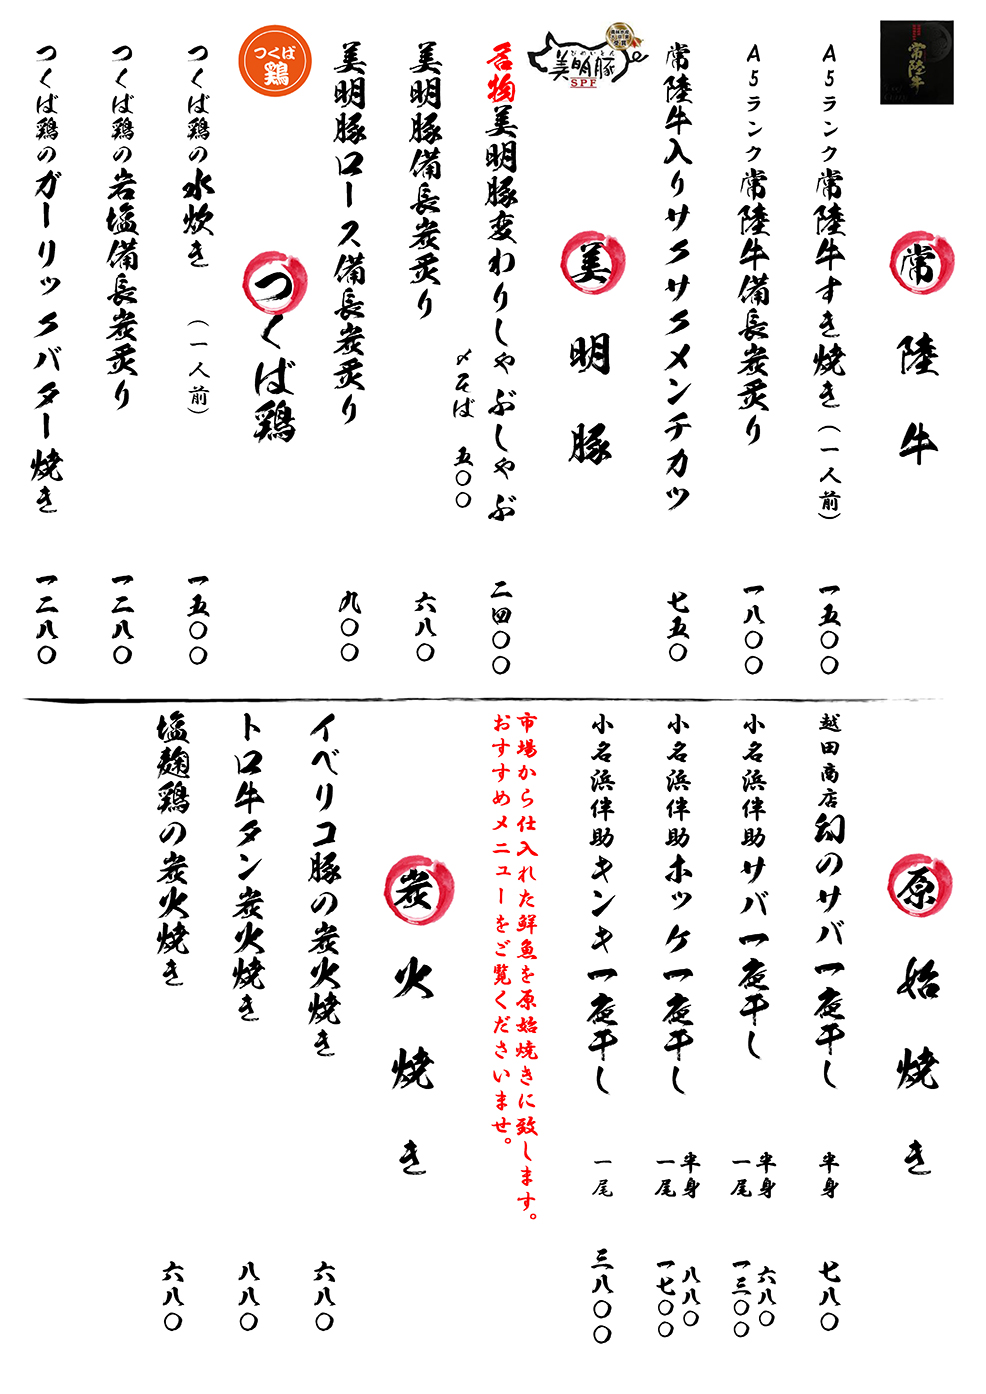 常陸牛
常陸牛
Ａ５ランク常陸牛すき焼き（一人前） 一五〇〇
Ａ５ランク常陸牛備長炭炙り 一八〇〇
常陸牛入りサクサクメンチカツ 七五〇
美明豚
SPF
美明豚
名物美明豚変わりしゃぶしゃぶ 二四〇〇
〆そば 五〇〇
美明豚備長炭炙り 六八〇
美明豚ロース備長炭炙り 九〇〇
つくば
鶏
つくば鶏
つくば鶏の水炊き （一人前） 一五〇〇
つくば鶏の岩塩備長炭炙り 一二八〇
つくば鶏のガーリックバター焼き 一二八〇
原始焼き
越田商店幻のサバ一夜干し 半身 七八〇
小名浜伴助サバ一夜干し 半身 六八〇
一尾 一三〇〇
小名浜伴助ホッケ一夜干し 半身 八八〇
一尾 一七〇〇
小名浜伴助キンキ一夜干し 一尾 三八〇〇
市場から仕入れた鮮魚を原始焼きに致します。
おすすめメニューをご覧くださいませ。
炭火焼き
イベリコ豚の炭火焼き 六八〇
トロ牛タン炭火焼き 八八〇
塩麹鶏の炭火焼き 六八〇